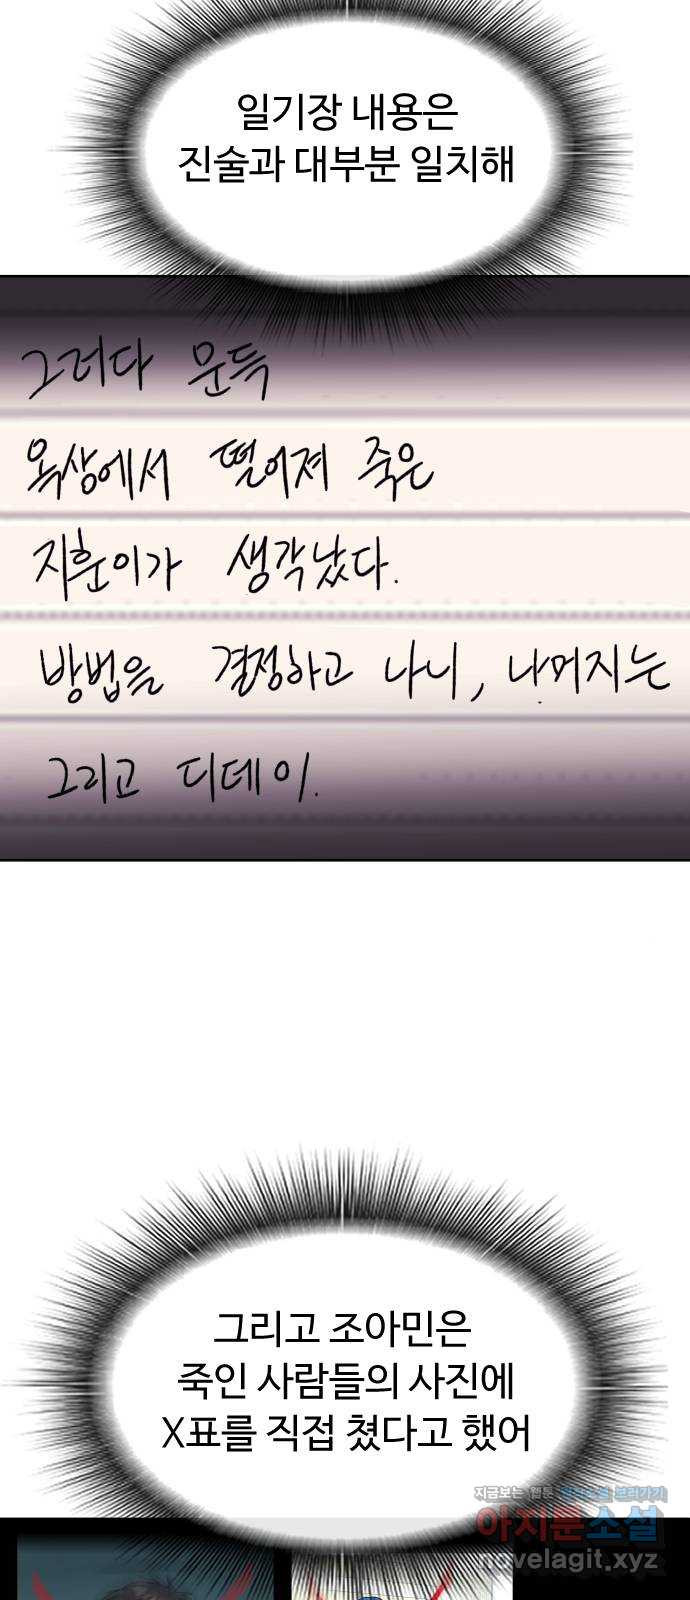 일기장 내용은
진술과 대부분 일치해
그러다 문득
옥상에서 떨어져 죽은
지훈이가 생각났다.
방법을 결정하고 나니, 나머지는
그리고 디데이.
그리고 조아민은
죽인 사람들의 사진에
X표를 직접 쳤다고 했어
지금보는 웹툰 웹소설로 보러가기
아지툰소설
novelagit.xyz